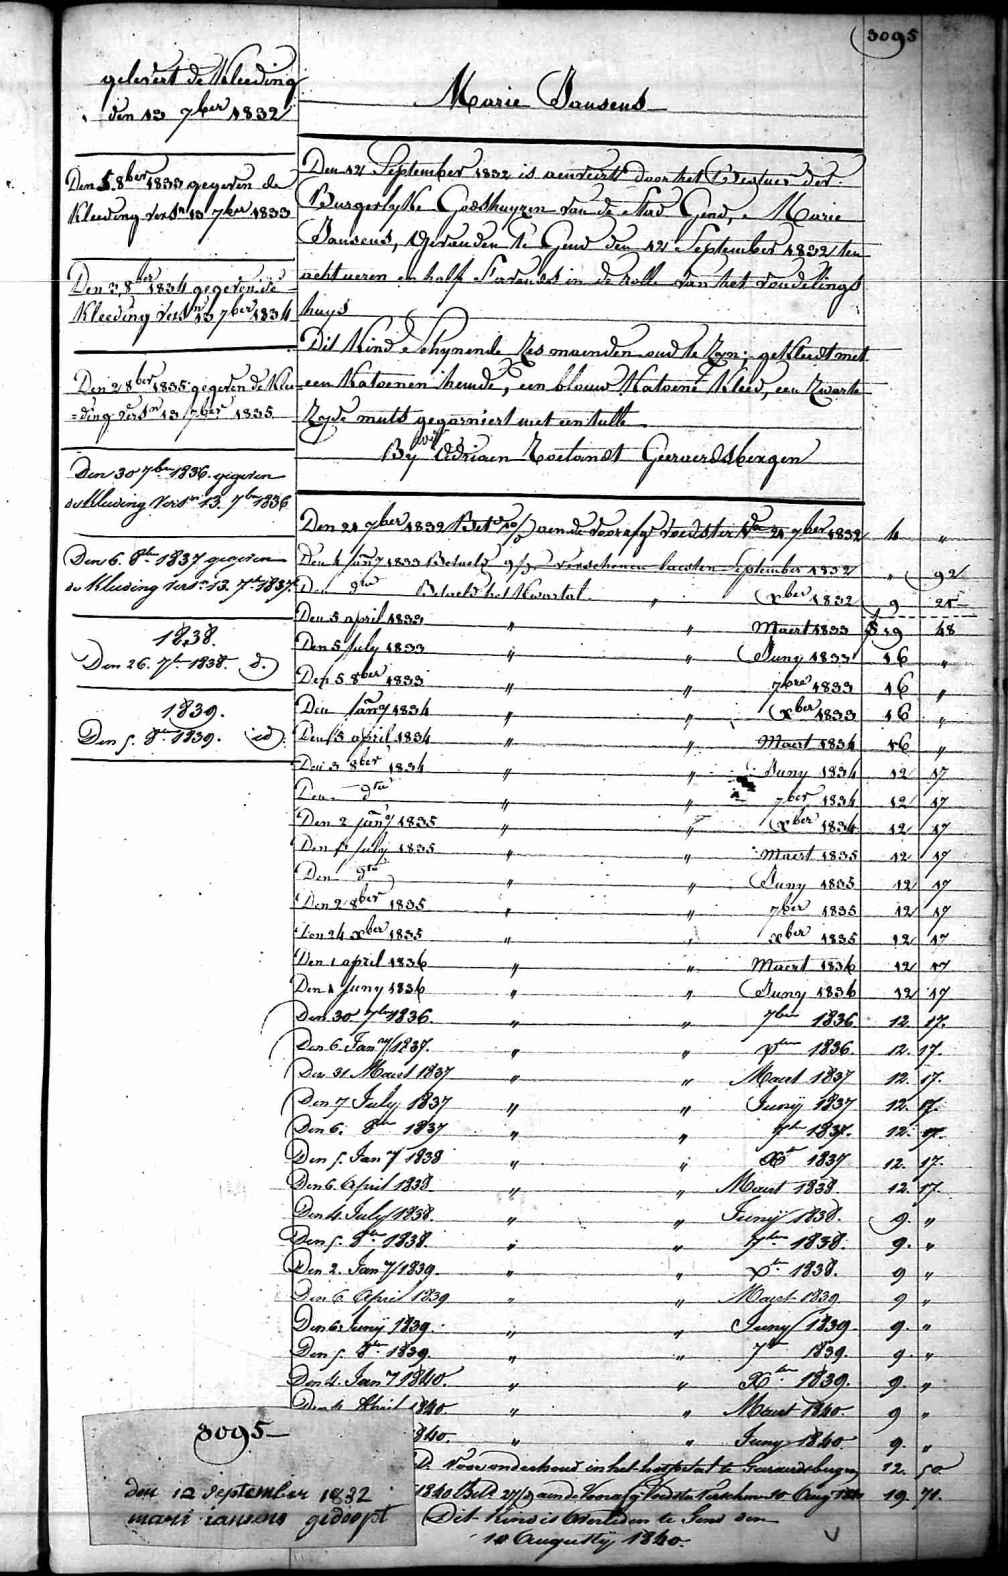 3095
gelevert de Kleeding
den 13 7ber 1832
Den 5 8ber 1833 gegeven de
Kleeding versn 13 7ber 1833
Den 3 8ber 1834 gegeven de
Kleeding versn 13 7ber 1834
Den 2 8ber 1835 gegeven de Klee
=ding versn 13 7ber 1835
Den 30 7ber 1836 gegeven
de Kleeding versn 13. 7ber 1836
Den 6. 8bre 1837 gegeven
de Kleeding versn 13. 7bre 1837
1838.
Den 26. 7bre 1838. d.
1839.
Den 5. 8bre 1839. id.
Marie Jansens
Den 12 September 1832 is aenveirt door het Bestuer der
Burgerlyke Godshuyzen van de Stad Gend, Marie
Jansens, Gevonden te Gend den 12 September 1832 ten
acht ueren en half s'avonds in de rolle van het vondelings
huys
Dit Kind Schynende zes maenden oud te zyn; gekleedt met
een Katoenen hemde, een blauw Katoene Kleed, een zwarte
zyde muts gegarniert met een tulle
By wif Adriaen Roelandt Geeraerdsbergen
Den 21 7ber 1832 Bet aen de voorafge voedster 21 7ber 1832 4 "
Den 1 Jany 1833 Betaeld verschenen laesten September 1832 " 92
Den dto Betaeld het Kwartal " xber 1832 9 25
Den 5 april 1833 " " Maert 1833 19 48
Den 5 July 1833 " " Juny 1833 16 "
Den 5 8ber 1833 " " 7bre 1833 16 "
Den Jany 1834 " " xber 1833 16 "
Den 5 april 1834 " " Maert 1834 16 "
Den 3 8ber 1834 " " Juny 1834 12 17
Den dto " " 7ber 1834 12 17
Den 2 Jany 1835 " " xber 1834 12 17
Den July 1835 " " Maert 1835 12 17
Den dto " " Juny 1835 12 17
Den 2 8ber 1835 " " 7ber 1835 12 17
Den 24 xber 1835 " " xber 1835 12 17
Den 1 april 1836 " " Maert 1836 12 17
Den 1 Juny 1836 " " Juny 1836 12 17
Den 30 7ber 1836. " " 7ber 1836 12. 17.
Den 6. Jany 1837. " " xber 1836. 12. 17.
Den 31 Maert 1837 " " Maert 1837 12. 17.
Den 7 July 1837 " " Junij 1837 12. 17.
Den 6. 8bre 1837 " " 7bre 1837. 12. 17.
Den 5. Jany 1838 " " Xbre 1837 12. 17.
Den 6. April 1838 " " Maert 1838 12. 17.
Den 4. July 1838. " " Junij 1838. 9. "
Den 5. 8bre 1838. " " 7bre 1838. 9. "
Den 2. Jany 1839. " " xbre 1838. 9 "
Den 6 April 1839 " " Maert 1839 9 "
Den 6 Junij 1839. " " Juny 1839 9. "
Den 5. 8bre 1839. " " 7bre 1839. 9. "
Den 4. Jany 1840. " " Xbre 1839. 9. "
Den 4 April 1840. " " Maert 1840. 9 "
1840. " " Juny 1840 9. "
D. voor onderhoud in het hospitael te Geraerdsbergen 12. 50
1840 Bet. aen de Voorafg Voedster verschenen 10 Aug 1840 19. 71.
Dit kind is Overleden te Gend den
10 Augustij 1840.
3095
den 12 September 1832
marie iansens gedoopt